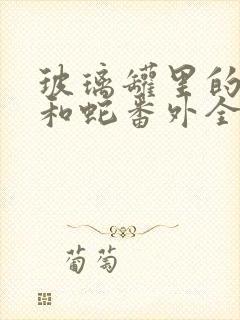 玻璃罐里的
和蛇番外全
葡萄